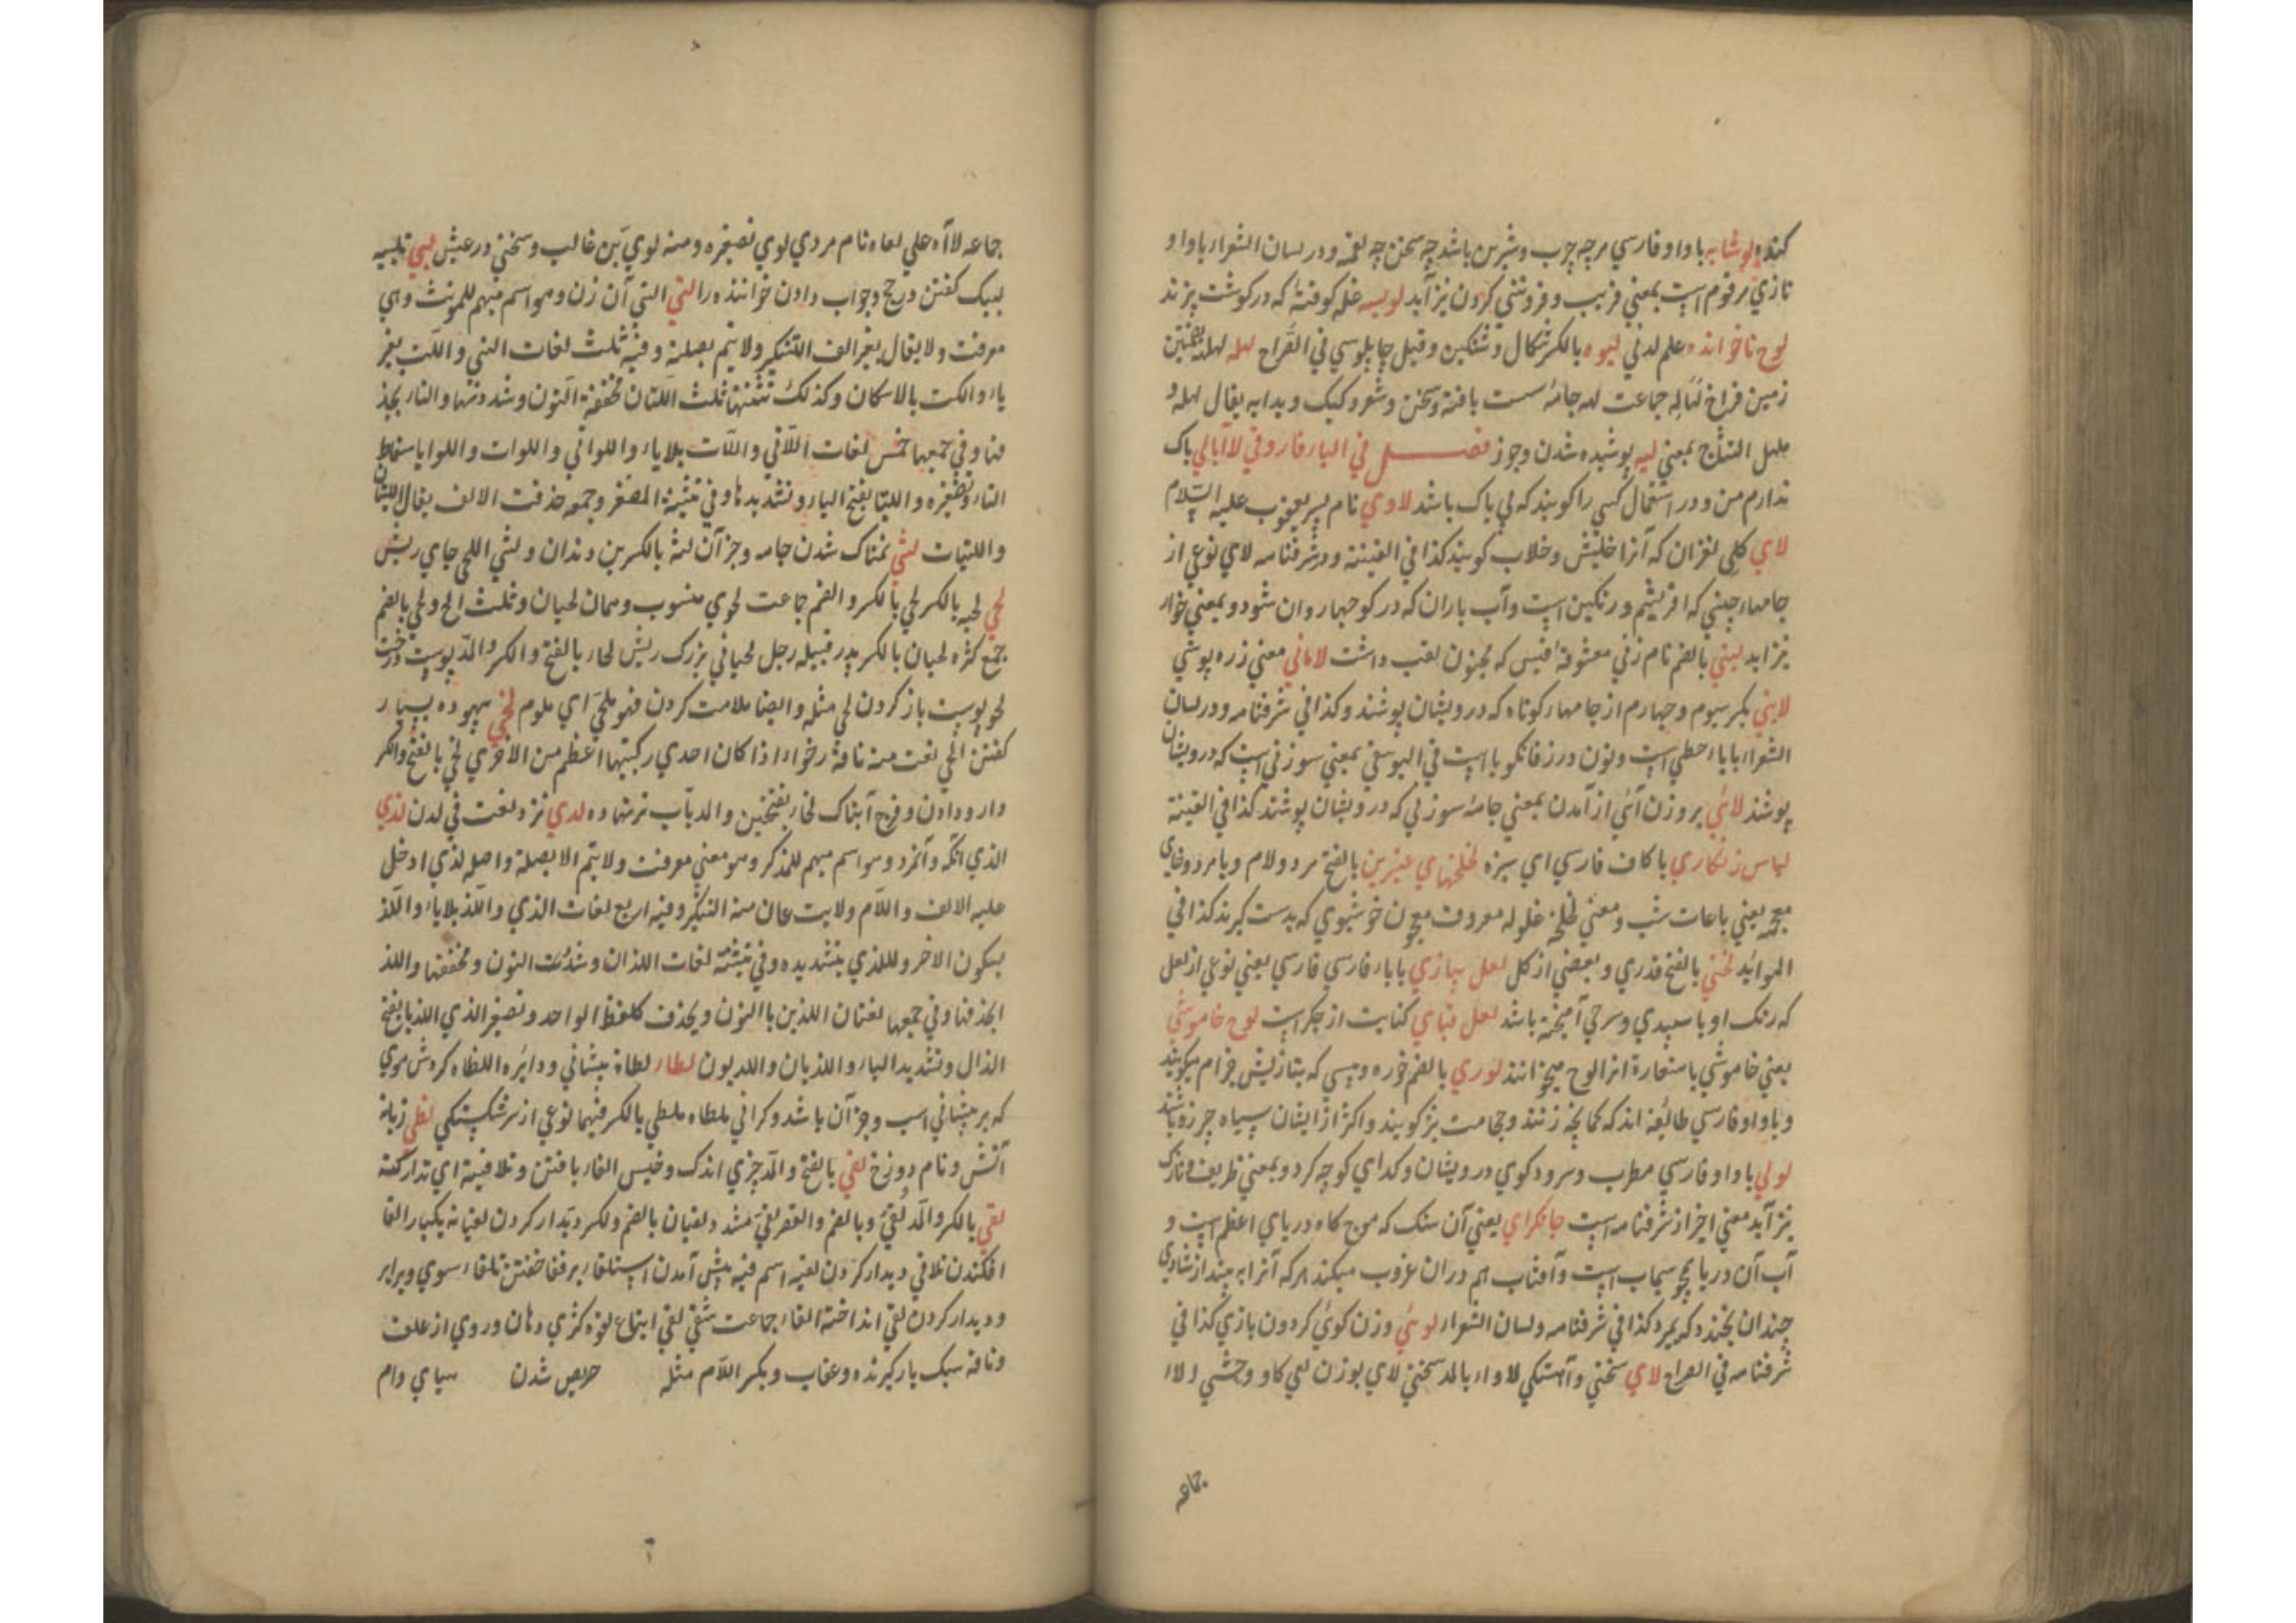 کنده لوشابه با واو فارسي هرچه چرب و شیرین باشد چه سخن چه لقمه و در لسان الشعراء با واو
تازي مرقوم است بمعني فریب و فروتني کردن نیز آید لویسه غله کوفته که در گوشت پزند
لوح ناخوانده علم لدني لیوه بالکسر شکال و شنکین و قیل چاپلوسي في القراح لهله لهله بضمتین
زمین فراخ لهاله جماعت لهه جامهٔ سست بافته و سخن و شعر رکیک و بدابه یقال لهله
النساج بمعني لیه پوشیده شدن و جز فصل في الیاء فارو في لاابالي باک
ندارم من و در استعمال کسي را گویند که بي باک باشد لاوي نام پسر یعقوب علیه السلام
لاي کلی لغزان که آنرا خلیش و خلاب گویند کذا في القنیة و در شرفنامه لاي نوعي از
جامهاء چیني که افریشم و رنگین است و آب باران که در کوچها روان شود و بمعني خوار
نیز آید لیني بالضم نام زني معشوقهٔ قیس که مجنون لقب داشت لاماني معني زره پوشي
لابني بکسر سیوم و چهارم از جامهاء کوتاه که درویشان پوشند و کذا في شرفنامه و در لسان
الشعراء بابا احطي است و نون در زفانگویا است في الیوسفي بمعني سوزني است که درویشان
پوشند لائي بر وزن آئي از آمدن بمعني جامهٔ سوزني که درویشان پوشند کذا في القنیة
لباس زنکاري با کاف فارسي اي سبزه لخلخهاي عنبرین بالفتح مرد و لام و با مرد و خاي
معجمه یعني با عات شب و معني لخلخه غلوله معروف معجون خوشبوي که بدست گیرند کذا في
الموائد لختي بالفتح قدري و بعضي از کل لعل پیازي با باء فارسي فارسي یعني نوعي از لعل
که رنک او با سپیدي و سرخي آمیخته باشد لعل قباي کنایت از جکر است لوح خاموشي
یعني خاموشي باستعارة انرا لوح میخوانند لوري بالضم خوره و پیسي که بتازیش جذام میگویند
و با واو فارسي طائفه اند که کمانچه زنند و حجامت نیز گویند و اکثر از ایشان سیاه چرزه باشند
لولي با واو فارسي مطرب و سرود کوي درویشان و کداي کوچه کرد و بمعني ظریف و نازک
نیز آید معني اخیر از شرفنامه است جانکراي یعني آن سنک که موج کاه دریاي اعظم است و
آب آن دریا همچو سیماب است و آفتاب هم دران غروب میکند هرکه آنرا به بیند از شادي
چندان بخندد که بمیرد کذا في شرفنامه و لسان الشعراء لوئي وزن کوئي کردون بازي کذا في
شرفنامه في الصراح لاي سختي و آهستکي لاواء بالمد سختي لاي بوزن لعي کاو وحشي لااء
جماعه
جماعه لاآه علي لعاه نام مردي لوي تصغیره و منه لوي بن غالب و سختي در عیش لبي تلبیه
لبیک کفتن در حج و جواب دادن خواننده را التي التي آن زن و هو اسم مبهم للمونث و هي
معرفت و لا یقال بغیر الف التنکیر و لا یتم بصلة و فیه ثلث لغات التي و اللت بغیر
یاء و الکت بالاسکان و کذلک تثنیتها ثلث اللتان مخففة النون و شددتها و التاء بحذ
فها و في جمعها خمس لغات اللاتي و اللات بلایاء و اللواتي و اللوات و اللوا باسقاط
التاء و تصغیره و اللتیا بفتح الیاء و تشدیدها و في تثنیة المصغر و جمعه حذفت الالف یقال اللتیان
و اللتیات لثي نمناک شدن جامه و جز آن لثة بالکسر بن دندان و لثي اللحي جاي ریش
لحي لحیه بالکسر لحي بالکسر و الضم جماعت لحوي منسوب و همان لحیان و ثلث الح و لحي بالضم
جمع کثره لحیان بالکسر پدر قبیله رجل لحیاني بزرک ریش لحاء بالفتح و الکسر و المد پوست درخت
لحو پوست باز کردن لحي مثله و الیضا ملامت کردن فهو ملحي اي ملوم لخي بیهوده بسیار
کفتن الخي لغت منه ناقة رخواء اذا کان احدي رکبتیها اعظم من الاخري لخي بالفتح و الکسر
دارو دادن و فرج آبناک لخاء بفتحتین و المد باب ترشاده لدي نزد لغت في لدن لذي
الذي آنکه و آنمرد و هو اسم مبهم للمذکر و هو معني معرفت و لا یتم الا بصلة و اصله لذي ادخل
علیه الالف و اللام و لا ینزعان منه التنکیر و فیه اربع لغات الذي و اللذ بلایاء و اللذ
بسکون الاخر و للذي بتشدیده و في تثنیته لغات اللذان و شدئت النون و مخففتها و اللذ
ابحذفها و في جمعها لغتان اللذین با النون و یحذف کلفظ الواحد و تصغیر الذي اللذیا بفتح
الذال و تشدید الیاء و اللذیان و اللدیون لطاء لطاة پیشاني و دایره اللطاه کردش موي
که بر پیشاني اسب و جز آن باشد و کراني ملطاه ملطي بالکسر فیهما نوعي از سر شکستکي لظي زبانه
آتش و نام دوزخ لفي بالفتح و المد چیزي اندک و خسیس الفاء یافتن و تلافیة اي تدارکته
لقي بالکسر و المد لقي و بالضم و القصر لقي مشدد لقیان بالضم و لکسر دیدار کردن لقیانه یکبار القا
افکندن تلاقي دیدار کردن لقیه اسم فیه پیش آمدن استلقاء بر قفا خفتن تلقاء سوي و برابر
و دیدار کردن لقي انداخته القاء جماعت شقي لقي اتباع لقوه کژي دهان و روي از علت
و ناقه سبک بار گیرنده و عقاب و بکسر اللام مثله حریص شدن سیاي دام